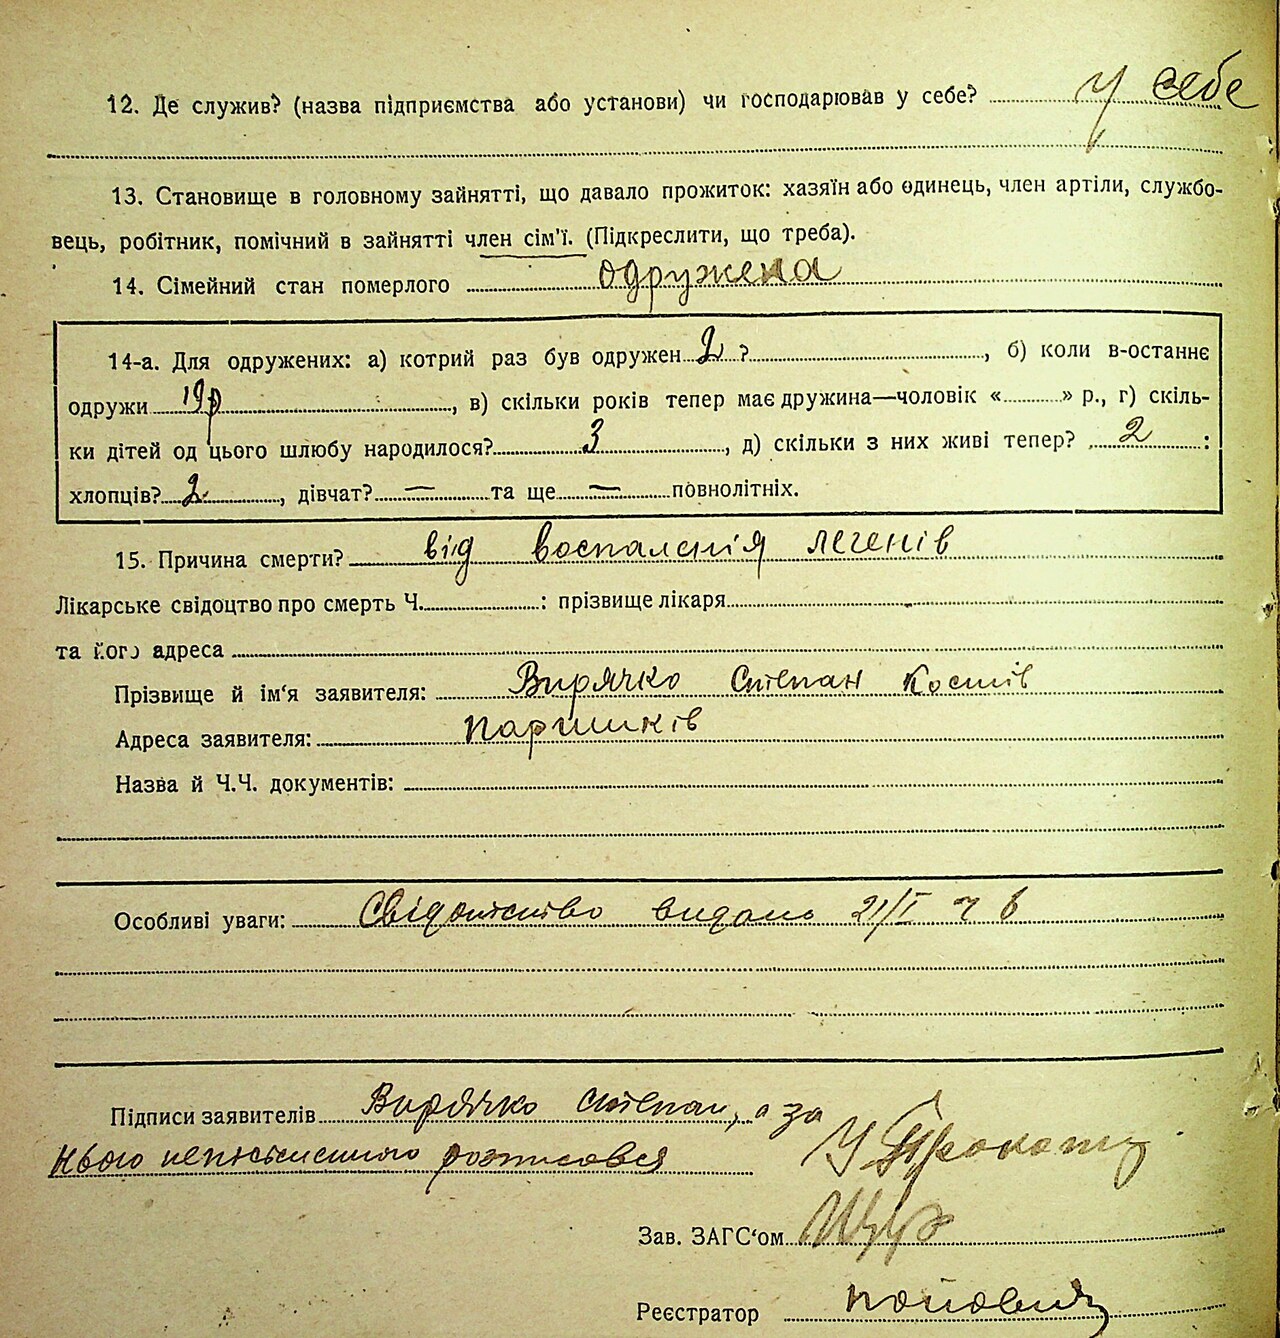 12. Де служив? (назва підприємства або установи) чи господарював у себе? у себе
13. Становище в головному зайнятті, що давало прожиток: хазяїн або одинець, член артіли, службо-
вець, робітник, помічний в зайнятті член сім'ї. (Підкреслити, що треба).
14. Сімейний стан померлого одружена
14-а. Для одружених: а) котрий раз був одружен 2 ?, б) коли в-останнє
одружи 19р, в) скільки років тепер має дружина—чоловік «» р., г) скіль-
ки дітей од цього шлюбу народилося? 3, д) скільки з них живі тепер? 2 :
хлопців? 2, дівчат? — та ще — повнолітніх.
15. Причина смерти? від воспаленія легенів
Лікарське свідоцтво про смерть Ч. : прізвище лікаря
та його адреса
Прізвище й ім'я заявителя: Вирячко Степан Костів
Адреса заявителя: Паришків
Назва й Ч.Ч. документів:
Особливі уваги: Свідотство видано 21/I
Підписи заявителів Вирячко Степан, а за
нього неписьменного розписовся
Зав. ЗАГС'ом
Реєстратор Попович